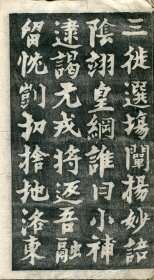 三徙選場闡揚妙語
陰翊皇綱誰曰小補
逮謁元戎將返吾融
留忱劉初捨地洛東